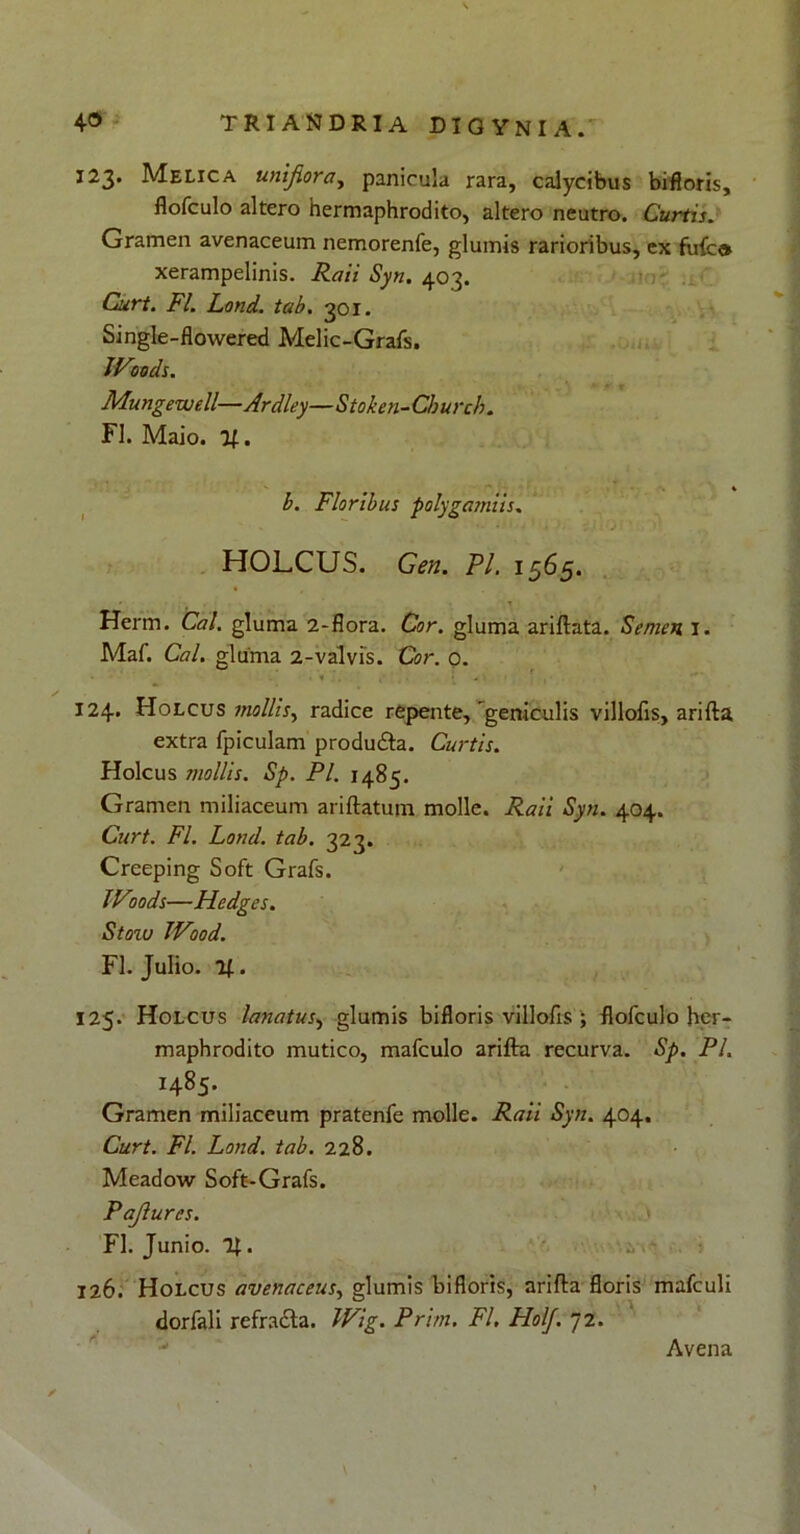 40 TRIANDRIA DIGYNIA.
123. MELICA uniflora, panicula rara, calycibus bifloris,
floſculo altero hermaphrodito, altero neutro. Curtis.
Gramen avenaceum nemorenſe, glumis rarioribus, ex fuſco
xerampelinis. Raii Syn. 403.
Curt. Fl. Lond. tab. 301.
Single-flowered Melic-Graſs.
Woods.
Mungewell—Ardley—Stoken-Church.
Fl. Maio. ♃.
b. Floribus polygamiis.
HOLCUS. Gen. Pl. 1565.
Herm. Cal. gluma 2-flora. Cor. gluma ariſtata. Semen 1.
Maſ. Cal. gluma 2-valvis. Cor. 0.
124. HOLCUS mollis, radice repente, geniculis villoſis, ariſta
extra ſpiculam producta. Curtis.
Holcus mollis. Sp. Pl. 1485.
Gramen miliaceum ariſtatum molle. Raii Syn. 404.
Curt. Fl. Lond. tab. 323.
Creeping Soft Graſs.
Woods—Hedges.
Stow Wood.
Fl. Julio. ♃.
125. HOLCUS lanatus, glumis bifloris villoſis; floſculo her-
maphrodito mutico, maſculo ariſta recurva. Sp. Pl.
1485.
Gramen miliaceum pratenſe molle. Raii Syn. 404.
Curt. Fl. Lond. tab. 228.
Meadow Soft-Graſs.
Paſtures.
Fl. Junio. ♃.
126. HOLCUS avenaceus, glumis bifloris, ariſta floris maſculi
dorſali refracta. Wig. Prim. Fl. Holſ. 72.
Avena